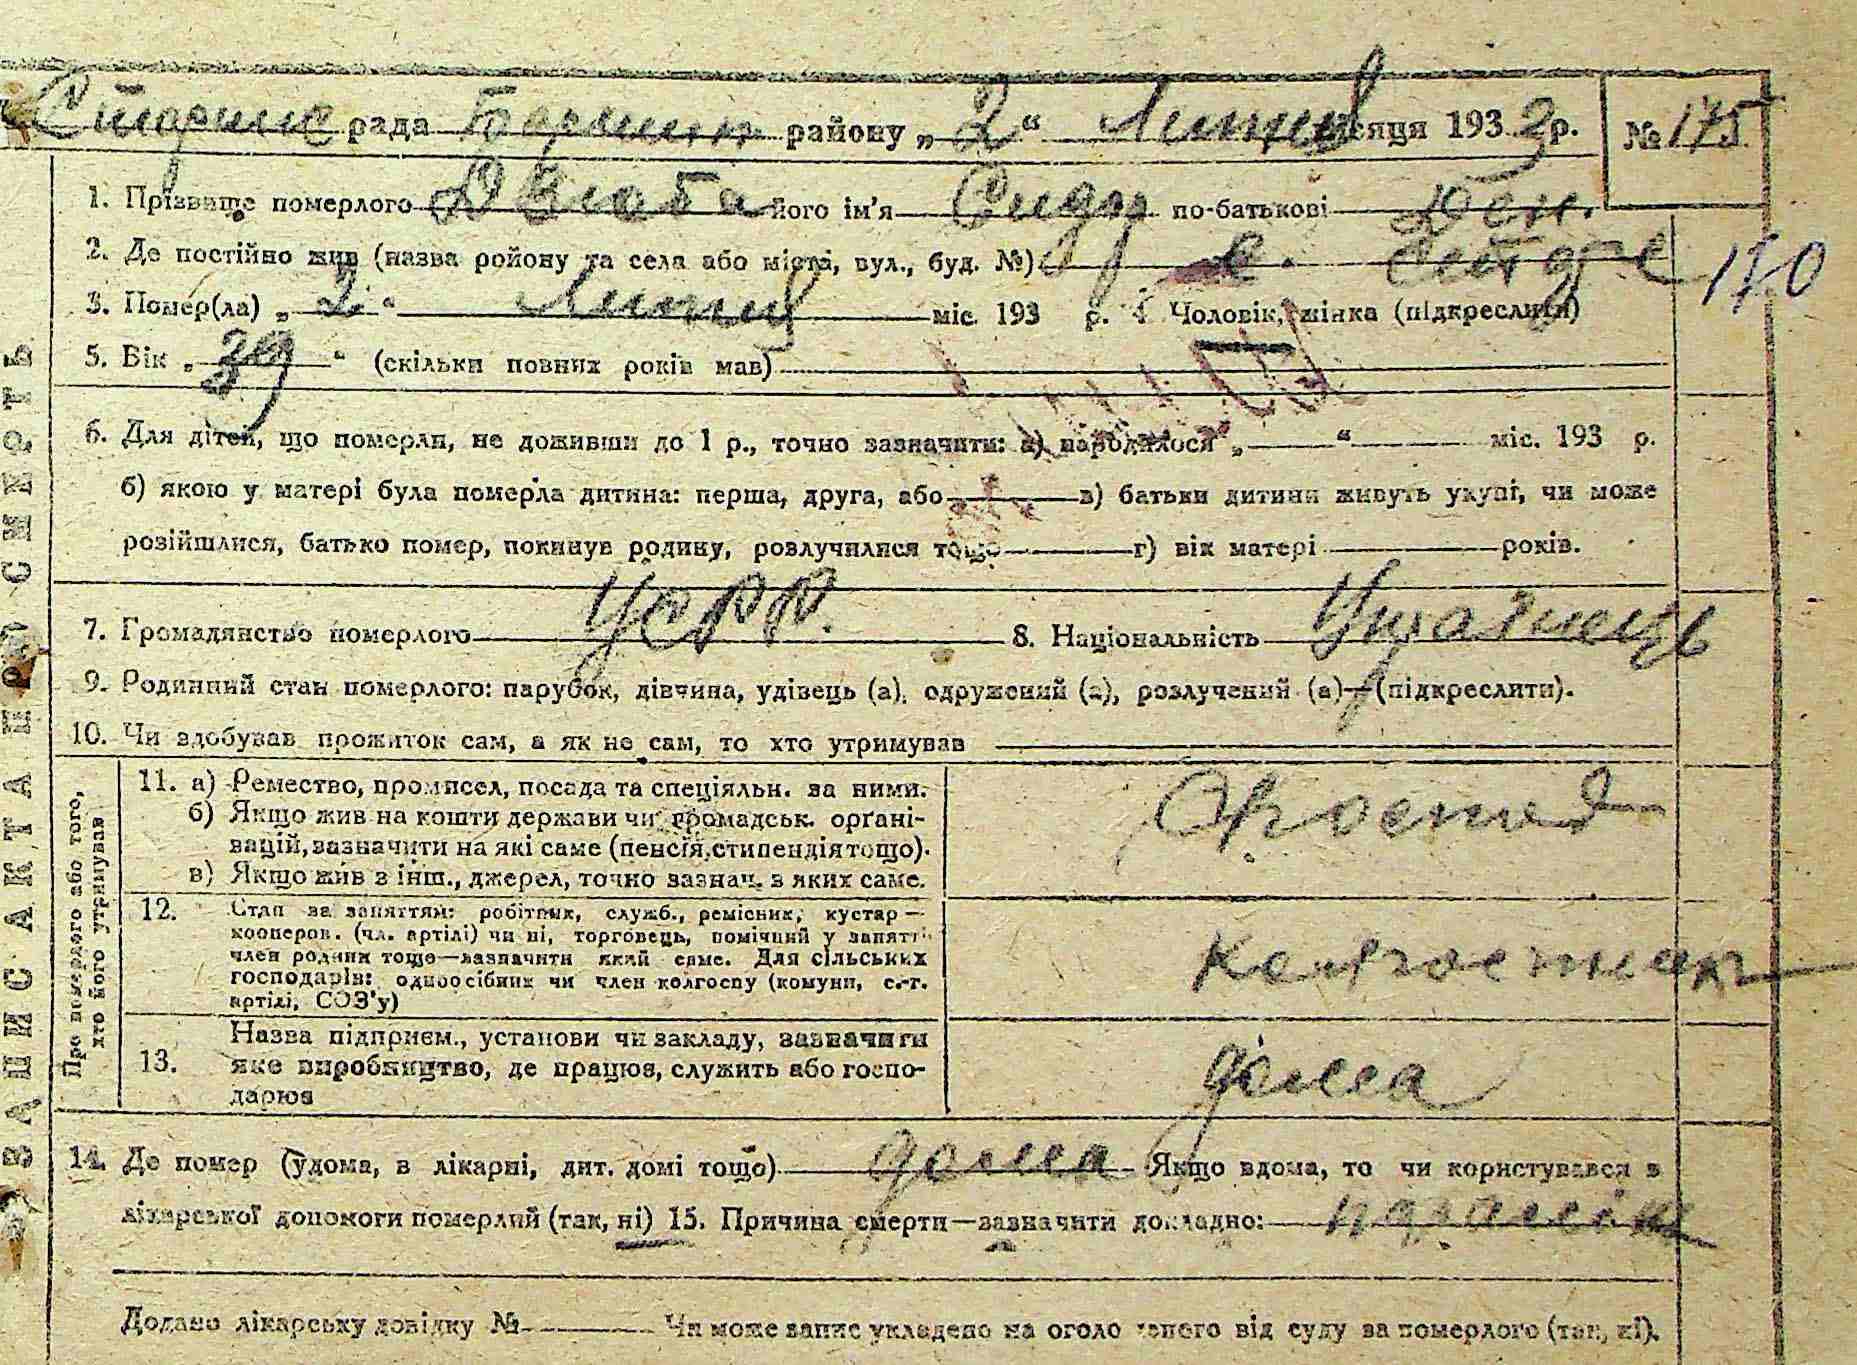 рада району „2“ місяця 193 р. № 175
1. Прізвище померлого Дзюба його ім'я Сидір по-батькові
2. Де постійно жив (назва району та села або міста, вул., буд. №) с. 170
3. Помер(ла) „2“ міс. 193 р. 4. Чоловік, жінка (підкреслити)
5. Вік „39“ (скільки повних років мав)
6. Для дітей, що померли, не доживши до 1 р., точно зазначити: а) народилося „ “ міс. 193 р.
б) якою у матері була померла дитина: перша, друга, або в) батьки дитини живуть укупі, чи може
розійшлися, батько помер, покинув родину, розлучилися тощо г) вік матері років.
7. Громадянство померлого УСРР. 8. Національність Українець
9. Родинний стан померлого: парубок, дівчина, удівець (а), одружений (а), розлучений (а)—(підкреслити).
10. Чи здобував прожиток сам, а як не сам, то хто утримував
ЗАПИС АКТА ПРО СМЕРТЬ
Про померлого або того, хто його утримував
11. а) Ремество, промисел, посада та спеціяльн. за ними.
б) Якщо жив на кошти держави чи громадськ. орґані-
зацій, зазначити на які саме (пенсія, стипендія тощо).
в) Якщо жив з інш., джерел, точно зазнач. з яких саме.
12. Стан за заняттям: робітник, служб., ремісник, кустар—
кооперов. (чл. артілі) чи ні, торговець, помічний у занятті
член родини тощо—зазначити який саме. Для сільських
господарів: одноосібник чи член колгоспу (комуни, с.-г.
артілі, СОЗ'у)
13. Назва підприєм., установи чи закладу, зазначити
яке виробництво, де працює, служить або госпо-
дарює
дома
14. Де помер (удома, в лікарні, дит. домі тощо) дома Якщо вдома, то чи користувався з
лікарської допомоги померлий (так, ні) 15. Причина смерти—зазначити докладно:
Додано лікарську довідку № Чи може запис укладено на оголошеного від суду за померлого (так, ні).